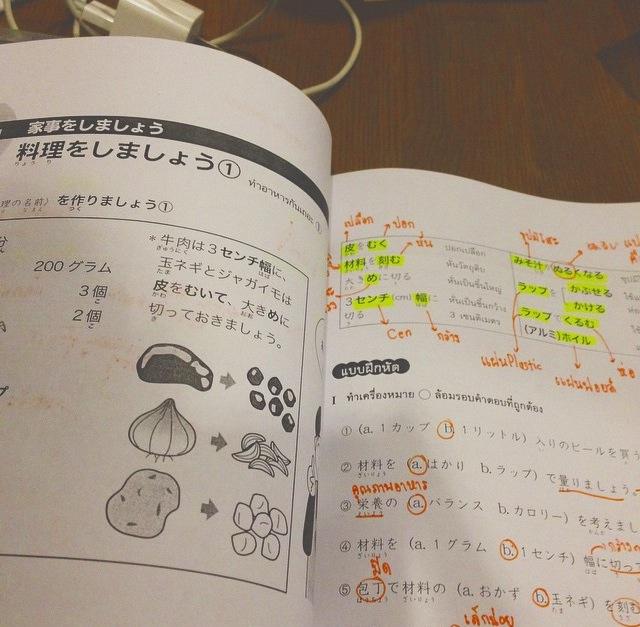 家事をしましょう
料理をしましょう①
りょうり
ทำอาหารกันเถอะ
理の名前〉を作りましょう①
つく
200 グラム
3 個
こ
2 個
こ
*牛肉は3センチ幅に、
ぎゅうにく はば
玉ネギとジャガイモは
たま
皮をむいて、大きめに
かわ おお
切っておきましょう。
เปลือก ปอก
皮をむく ปอกเปลือก
材料を刻む หั่นวัตถุดิบ
หั่น
大きめに切る หั่นเป็นชิ้นใหญ่
3センチ(cm)幅に หั่นเป็นชิ้นกว้าง
切る 3 เซนติเมตร
Cen กว้าง
みそ汁がぬるくなる
ラップを かぶせる
かける
ラップでくるむ
(アルミ)ホイル
แผ่นPlastic
แผ่นฟอยล์
ห่อ
แบบฝึกหัด
I ทำเครื่องหมาย ○ ล้อมรอบคำตอบที่ถูกต้อง
① (a. 1カップ b. 1リットル) 入りのビールを買う
② 材料を (a. はかり b. ラップ) で量りましょう。
ざいりょう
คุณภาพอาหาร
③ 栄養の (a. バランス b. カロリー) を考えまし
えいよう
④ 材料を (a. 1グラム b. 1センチ) 幅に切っ
ざいりょう はば
กว้าง
มีด
⑤ 包丁で材料の (a. おかず b. 玉ネギ) を刻
ほうちょう ざいりょう たま